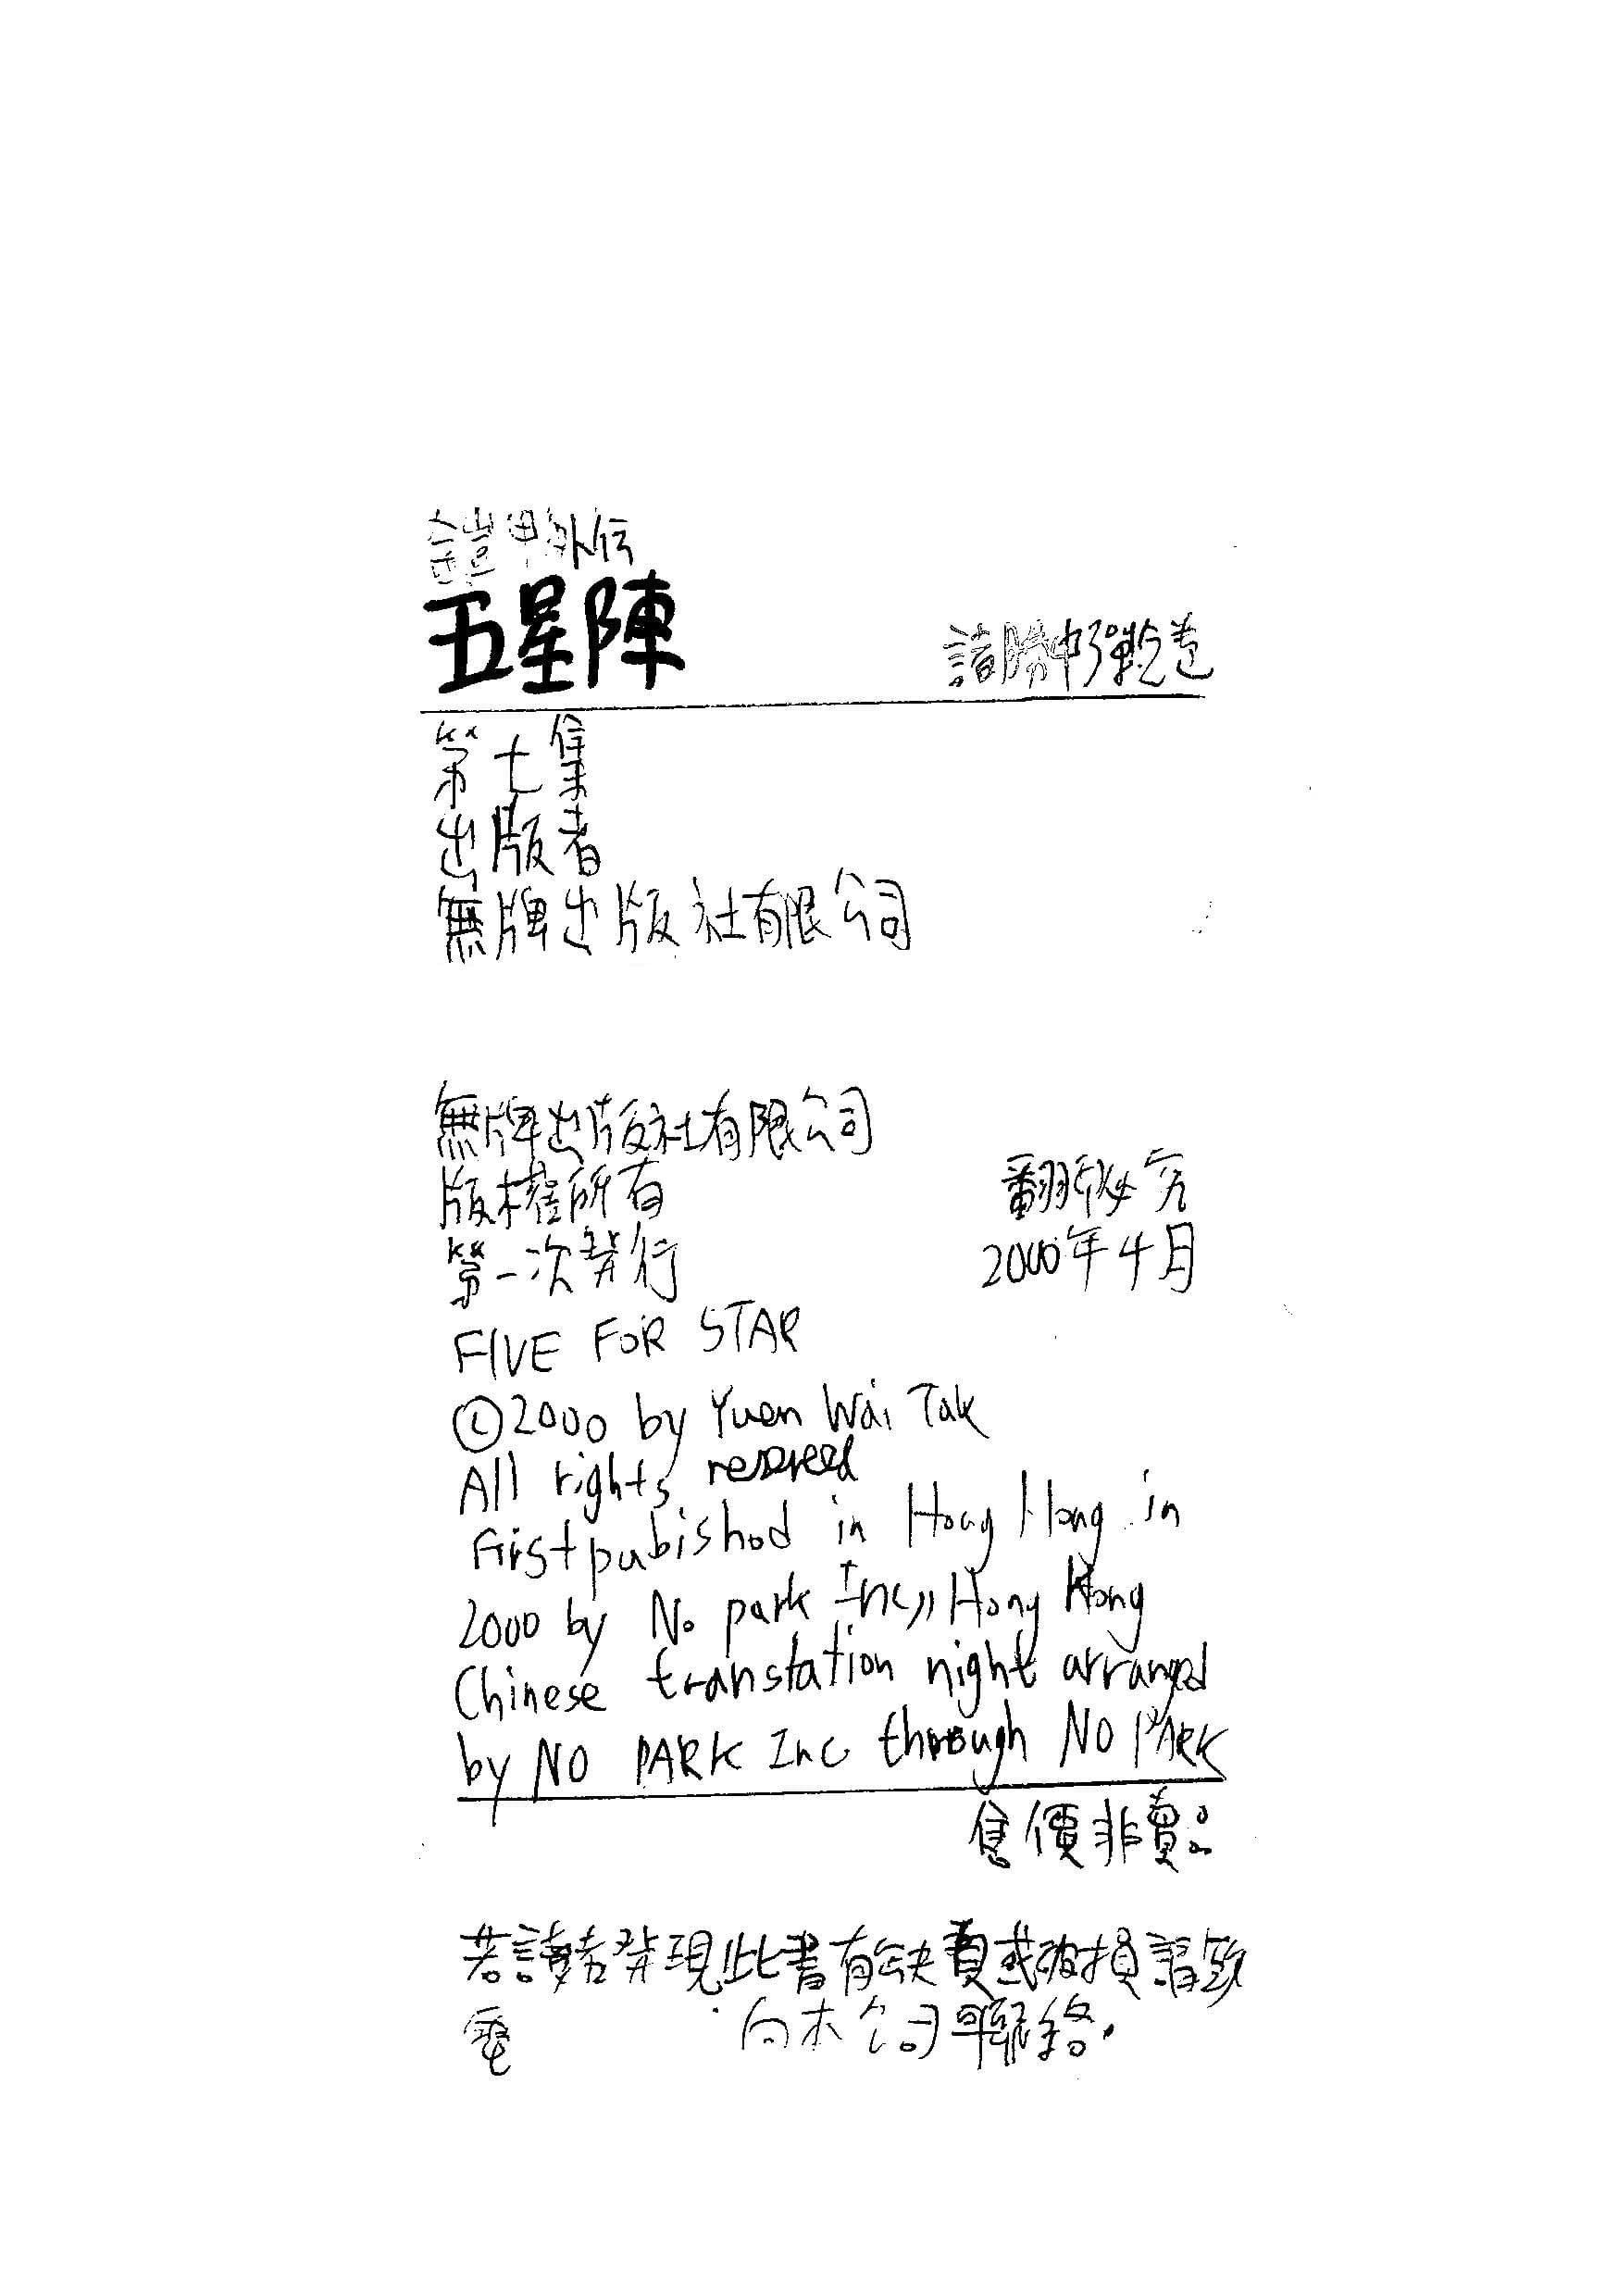 鎧甲外伝
五星陣
第七集
出版者
無牌出版社有限公司
無牌出版社有限公司
版權所有 翻印必究
第一次發行 2000年4月
FIVE FOR STAR
©2000 by Yuen Wai Tak
All rights reserved
First pubished in Hong Hong in
2000 by No park Inc,, Hong Kong
Chinese transtation night arranged
by NO PARK Inc through NO PARK
售價非賣品
若讀者發現此書有缺頁或破損請致
電 向本公司聯絡.